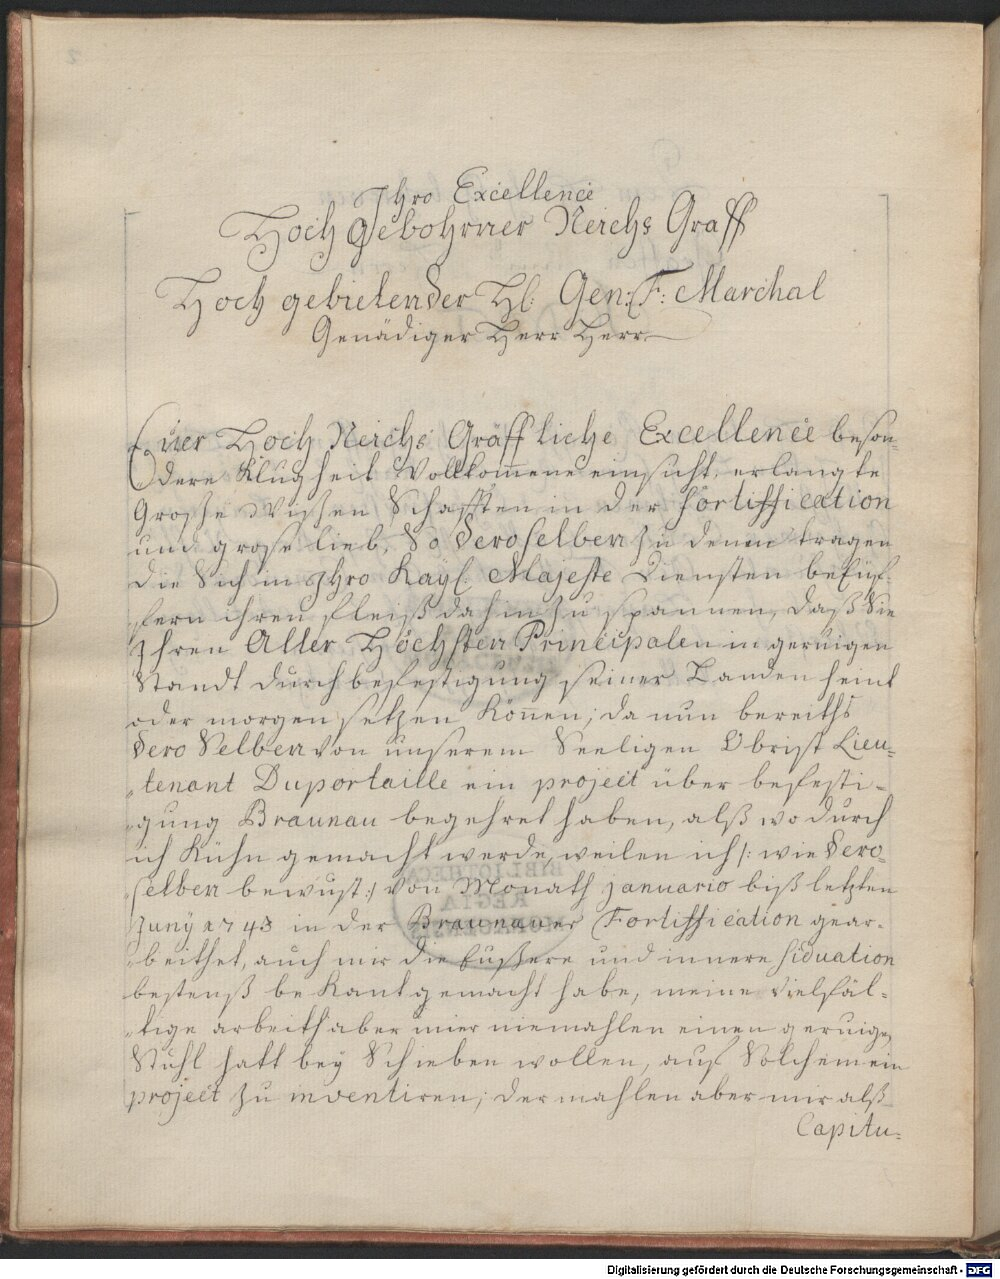 Ihro Excellence
Hoch gebohrner Reichs Graff
Hoch gebietender H: Gen: F: Marchal
Genädiger Herr Herr
Euer Hoch Reichs Gräffliche Excellence beson-
dere Klugheit Vollkom̄ene einsicht, erlangte
Große Wißen Schafften in der Fortiffication
und große lieb, So Deroselben zu denen tragen
die Sich in Ihro Kayß: Majeste Diensten befüß-
sern ihren fleiß dahin zu spannen, daß Sie
Ihren Aller Höchsten Principalen in geruigen
Standt durch befestigung seiner Landen heint
oder morgen setzen Kön̄en; da nun bereiths
Dero Selben von unserem Seeligen Obrist Lieu-
tenant Duportaille ein project über befesti-
gung Braunau begehret haben, alß wo durch
ich Kühn gemacht werde, weilen ich /: wie Dero-
selben bewust :/ von Monath januario biß letzten
Juny 1743 in der Braunauer Fortiffication gear-
beithet, auch mir die Eußere und innere Siduation
bestenß be Kant gemacht habe, meine vielfäl-
tige arbeith aber mier niemahlen einen geruigen
Stuhl hatt bey Schieben wollen, auf Solchem ein
project zu inventiren; der mahlen aber mir alß
Capitu-
BIBLIOTHECA
REGIA
MONACENSIS
Digitalisierung gefördert durch die Deutsche Forschungsgemeinschaft - DFG